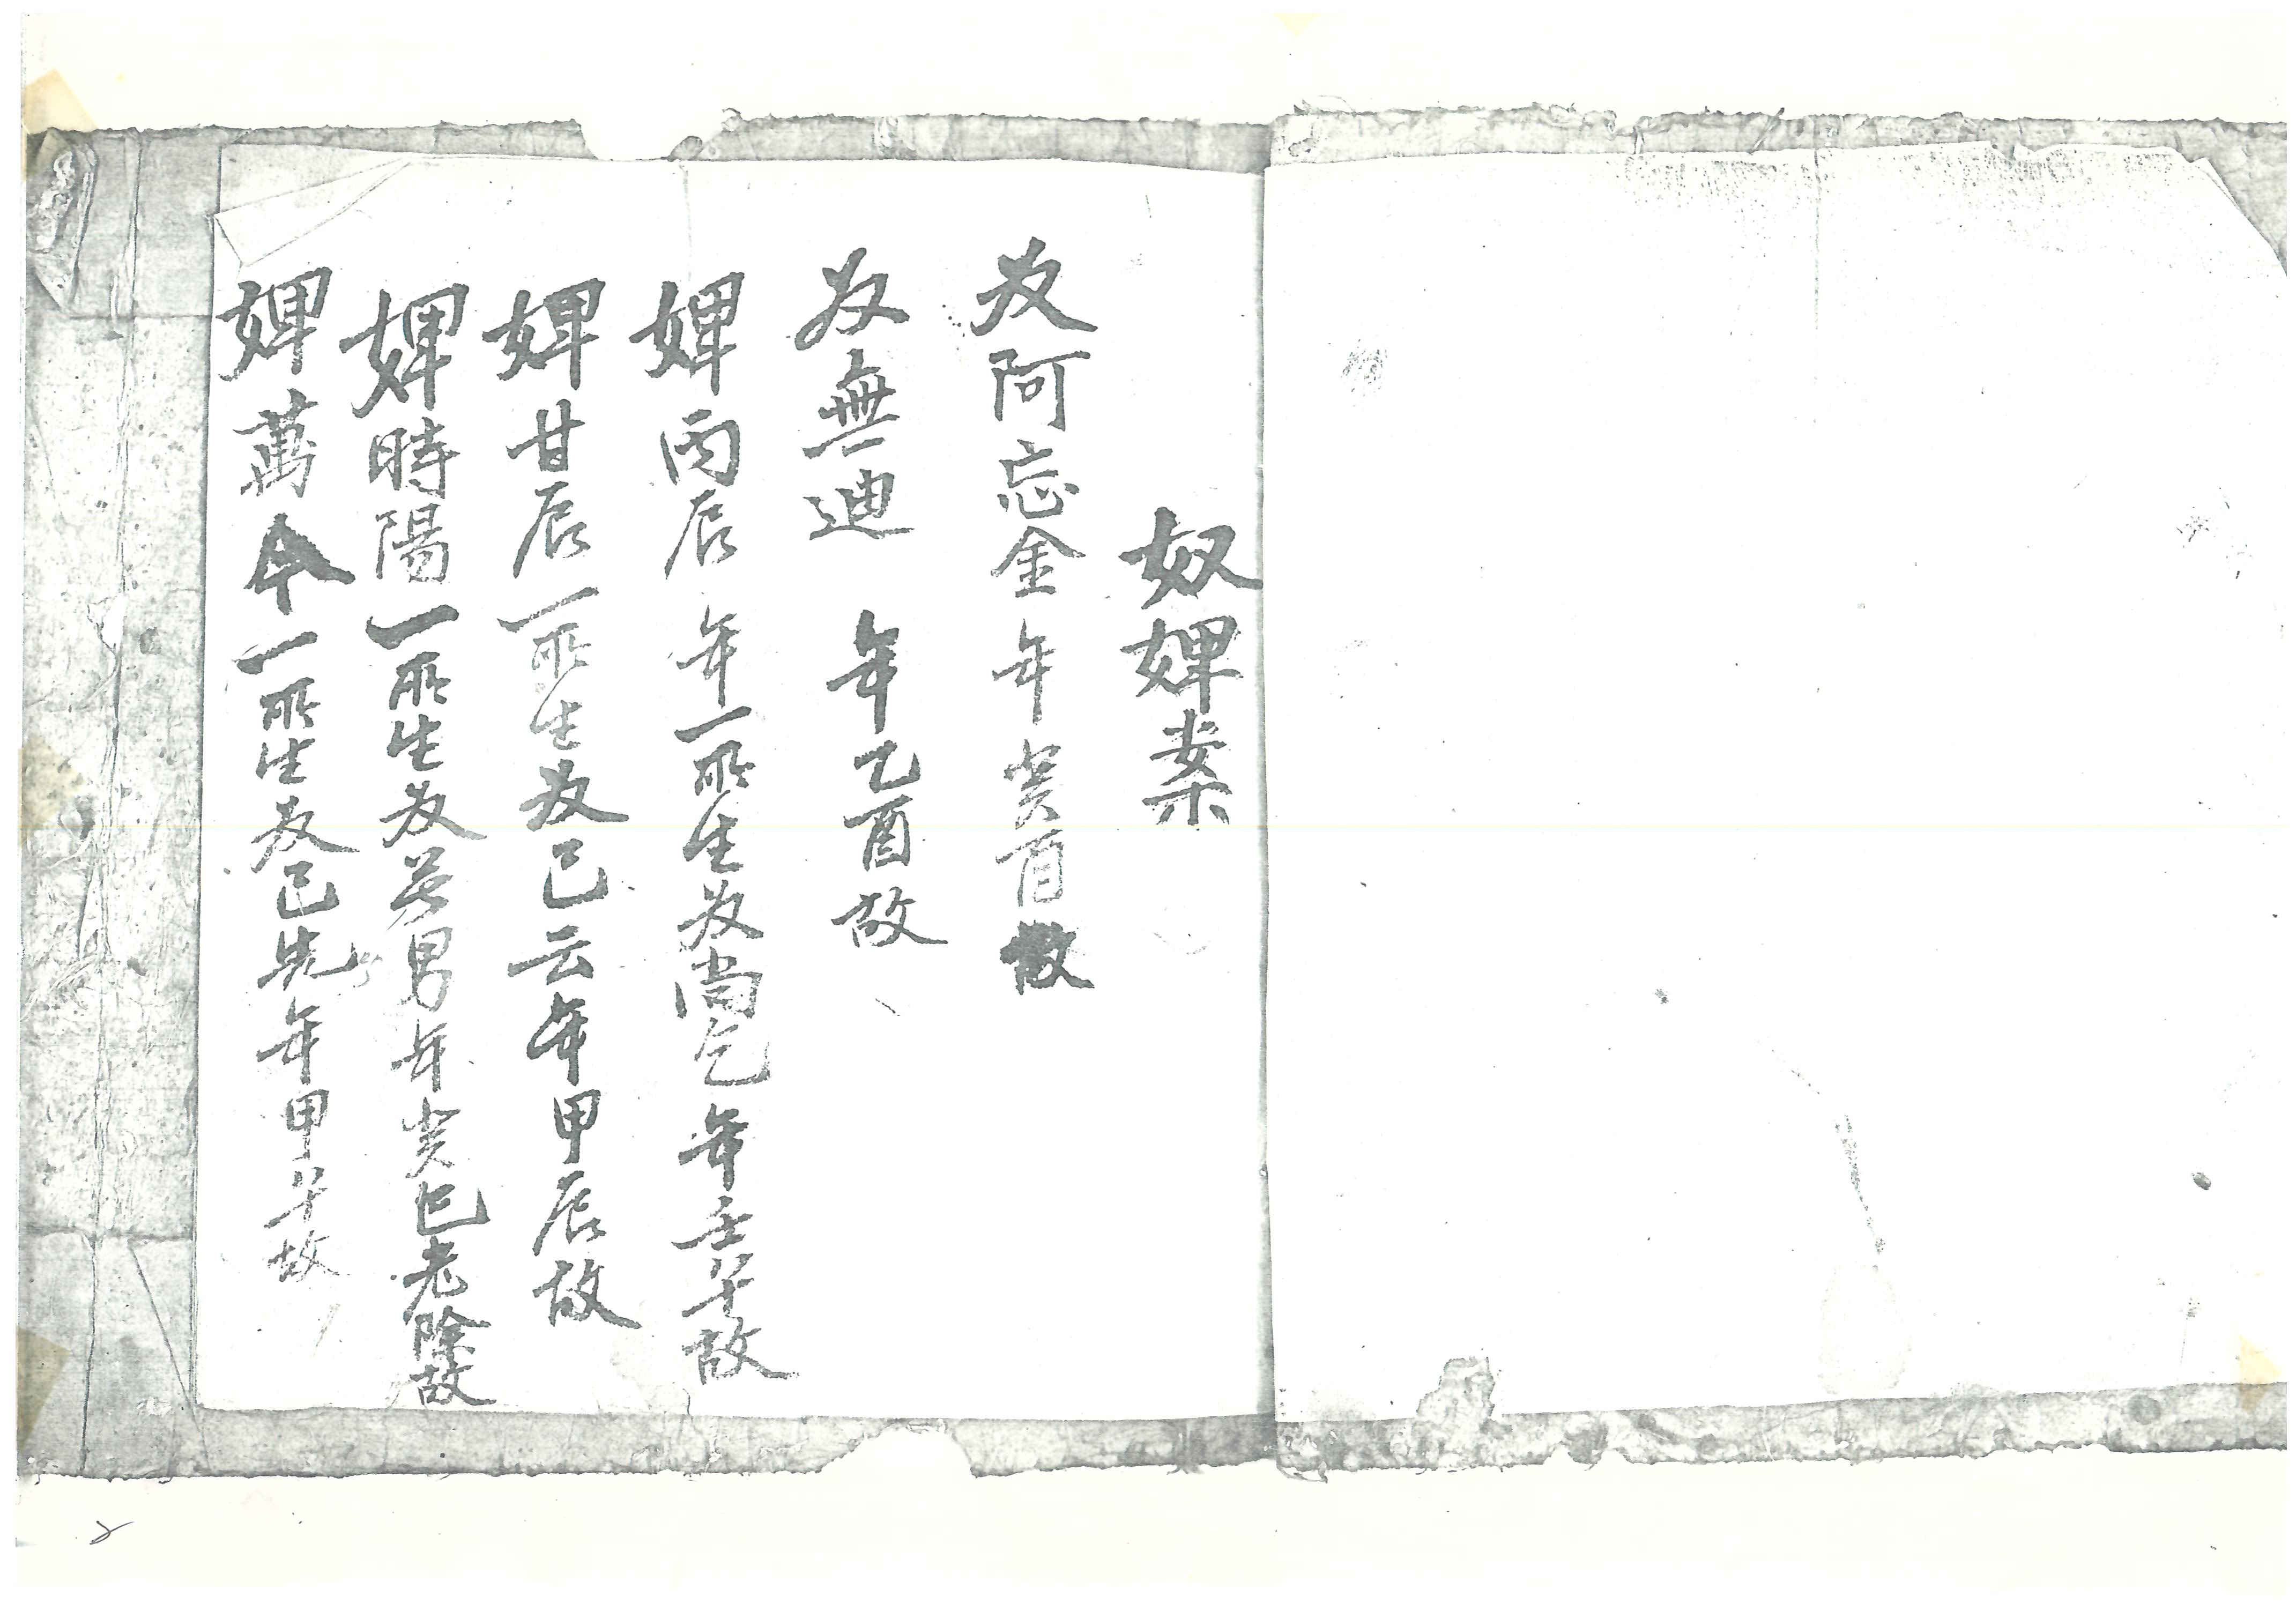 奴婢案
奴阿忘金年癸酉故
奴無迪 年乙酉故
婢丙辰年一所生奴尚乞年壬午故
婢甘辰一所生奴己云年甲辰故
婢時陽一所生奴男年癸巳老除故
婢萬今一所生奴己先年甲午故
2